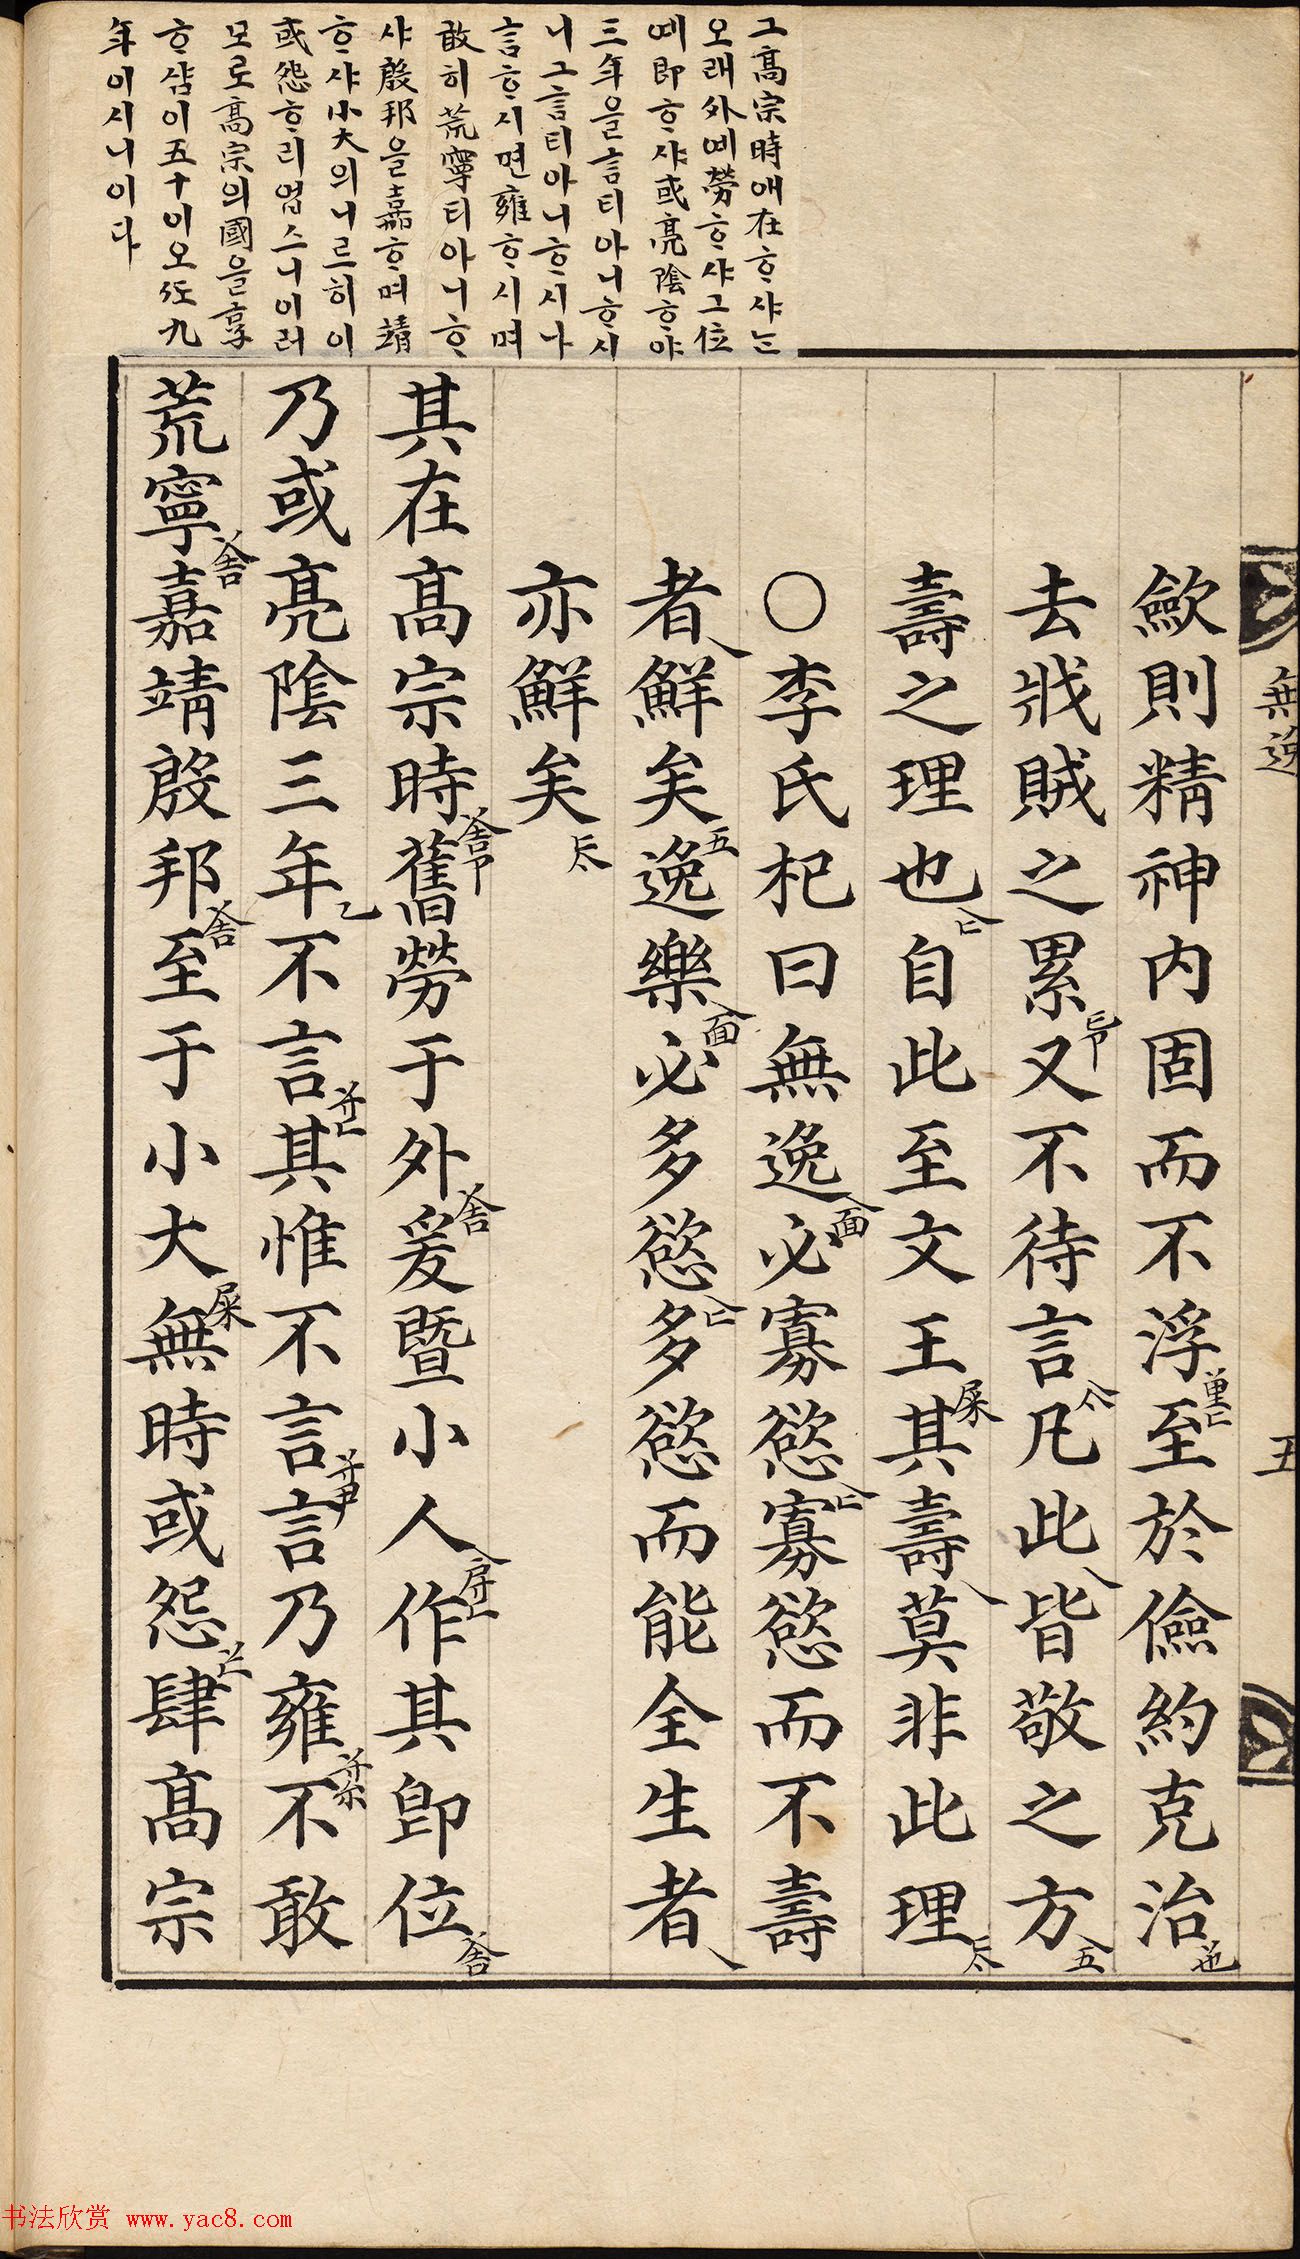 그高宗時애在ᄒᆞ샤ᄂᆞᆫ
오래外예勞ᄒᆞ샤그位
예即ᄒᆞ샤或亮陰ᄒᆞ야
三年을言티아니ᄒᆞ시
니그言티아니ᄒᆞ시나
言ᄒᆞ시면雍ᄒᆞ시며
敢히荒寧티아니ᄒᆞ
샤殷邦을嘉ᄒᆞ며靖
ᄒᆞ샤小大의니르히이
或怨ᄒᆞ리업스니이러
모로高宗의國을享
ᄒᆞ샴이五十이오ᄯᅩ九
年이시니이다
無逸
五
斂則精神內固而不浮至於儉約克治
去戕賊之累又不待言凡此皆敬之方
壽之理也自此至文王其壽莫非此理
○李氏杞曰無逸必寡慾寡慾而不壽
者鮮矣逸樂必多慾多慾而能全生者
亦鮮矣
其在高宗時舊勞于外爰暨小人作其卽位
乃或亮陰三年不言其惟不言言乃雍不敢
荒寧嘉靖殷邦至于小大無時或怨肆高宗
书法欣赏 www.yac8.com